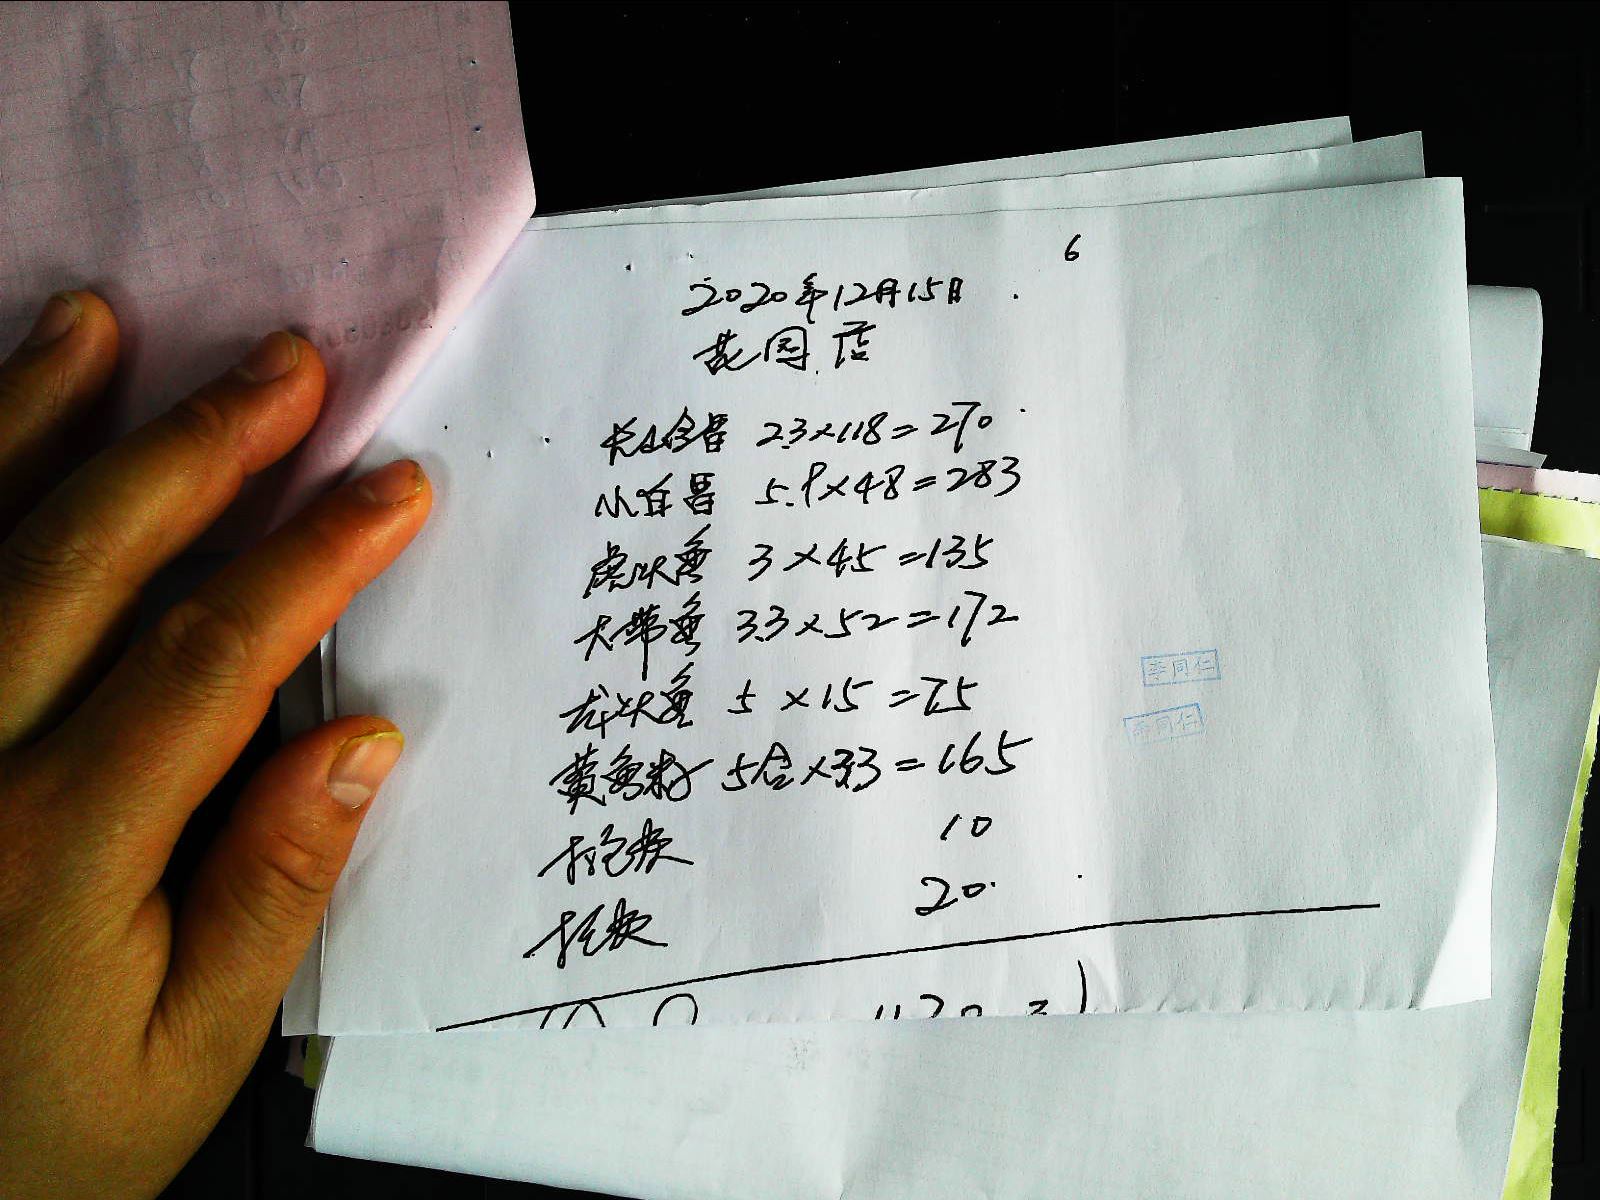 6
2020年12月15日
花园店
大白昌 2.3×118=270
小白昌 5.9×48=283
虎头鱼 3×45=135
大带鱼 3.3×52=172
龙头鱼 5×15=75
黄鱼籽 5合×33=165
10
20
李同仁
李同仁